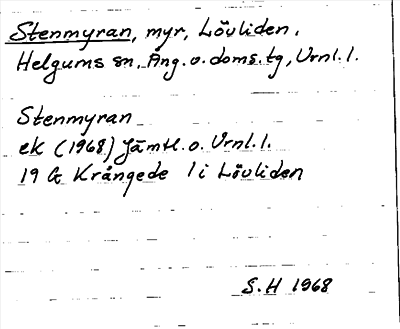 Stenmyran, myr, Lövliden.
Helgums sn, Ång. o. doms. tg, Vrnl. l.
Stenmyran
ek (1968) Jämtl. o. Vrnl. l.
19 G Krångede 1 i Lövliden
S. H 1968